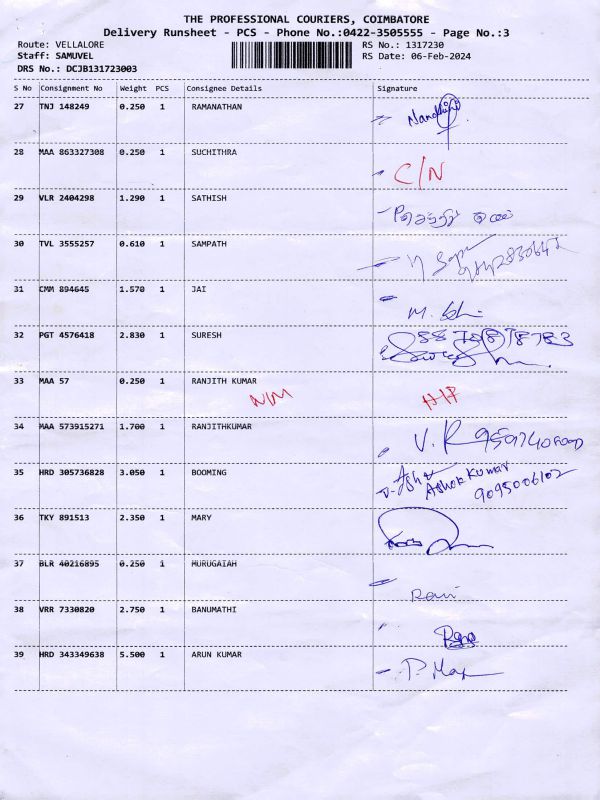 THE PROFESSIONAL COURIERS, COIMBATORE
Delivery Runsheet - PCS - Phone No.:0422-3505555 - Page No.:3
Route: VELLALORE RS No.: 1317230
Staff: SAMUVEL RS Date: 06-Feb-2024
DRS No.: DCJB131723003
S No Consignment No Weight PCS Consignee Details Signature
27 TNJ 148249 0.250 1 RAMANATHAN
28 MAA 863327308 0.250 1 SUCHITHRA C/N
29 VLR 2404298 1.290 1 SATHISH
30 TVL 3555257 0.610 1 SAMPATH
31 CMM 894645 1.570 1 JAI
32 PGT 4576418 2.830 1 SURESH
33 MAA 57 0.250 1 RANJITH KUMAR
N/M
34 MAA 573915271 1.700 1 RANJITHKUMAR
35 HRD 305736828 3.050 1 BOOMING
Ashok Kumar
9095006102
36 TKY 891513 2.350 1 MARY
37 BLR 40216895 0.250 1 MURUGAIAH
Ravi
38 VRR 7330820 2.750 1 BANUMATHI
39 HRD 343349638 5.500 1 ARUN KUMAR